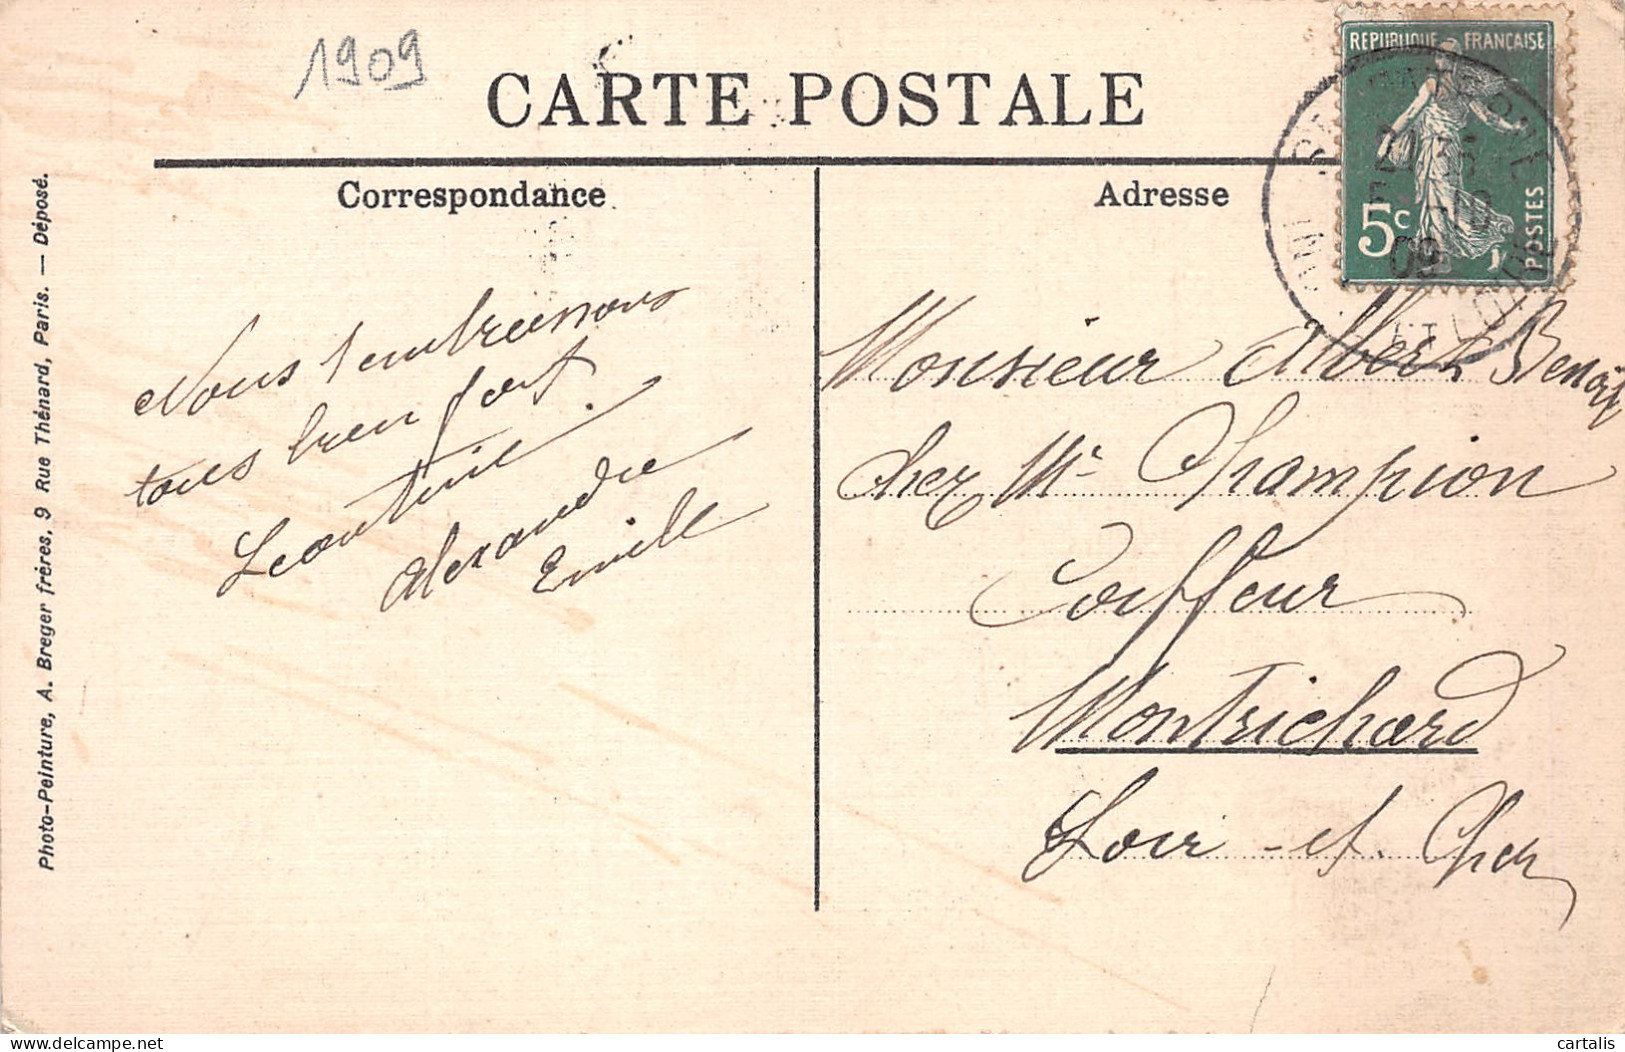 1909
CARTE POSTALE
Correspondance
Adresse
REPUBLIQUE FRANÇAISE
5c
POSTES
09
INDRE ET LOIRE
Nous t'embrassons
tous bien fort
Léontine
Alexandre
Emile
Monsieur Albert Benoît
chez Mr Champion
Coiffeur
Montrichard
Loir-et-Cher
Photo-Peinture, A. Breger frères, 9 Rue Thénard, Paris. — Déposé.
delcampe.net
cartalis